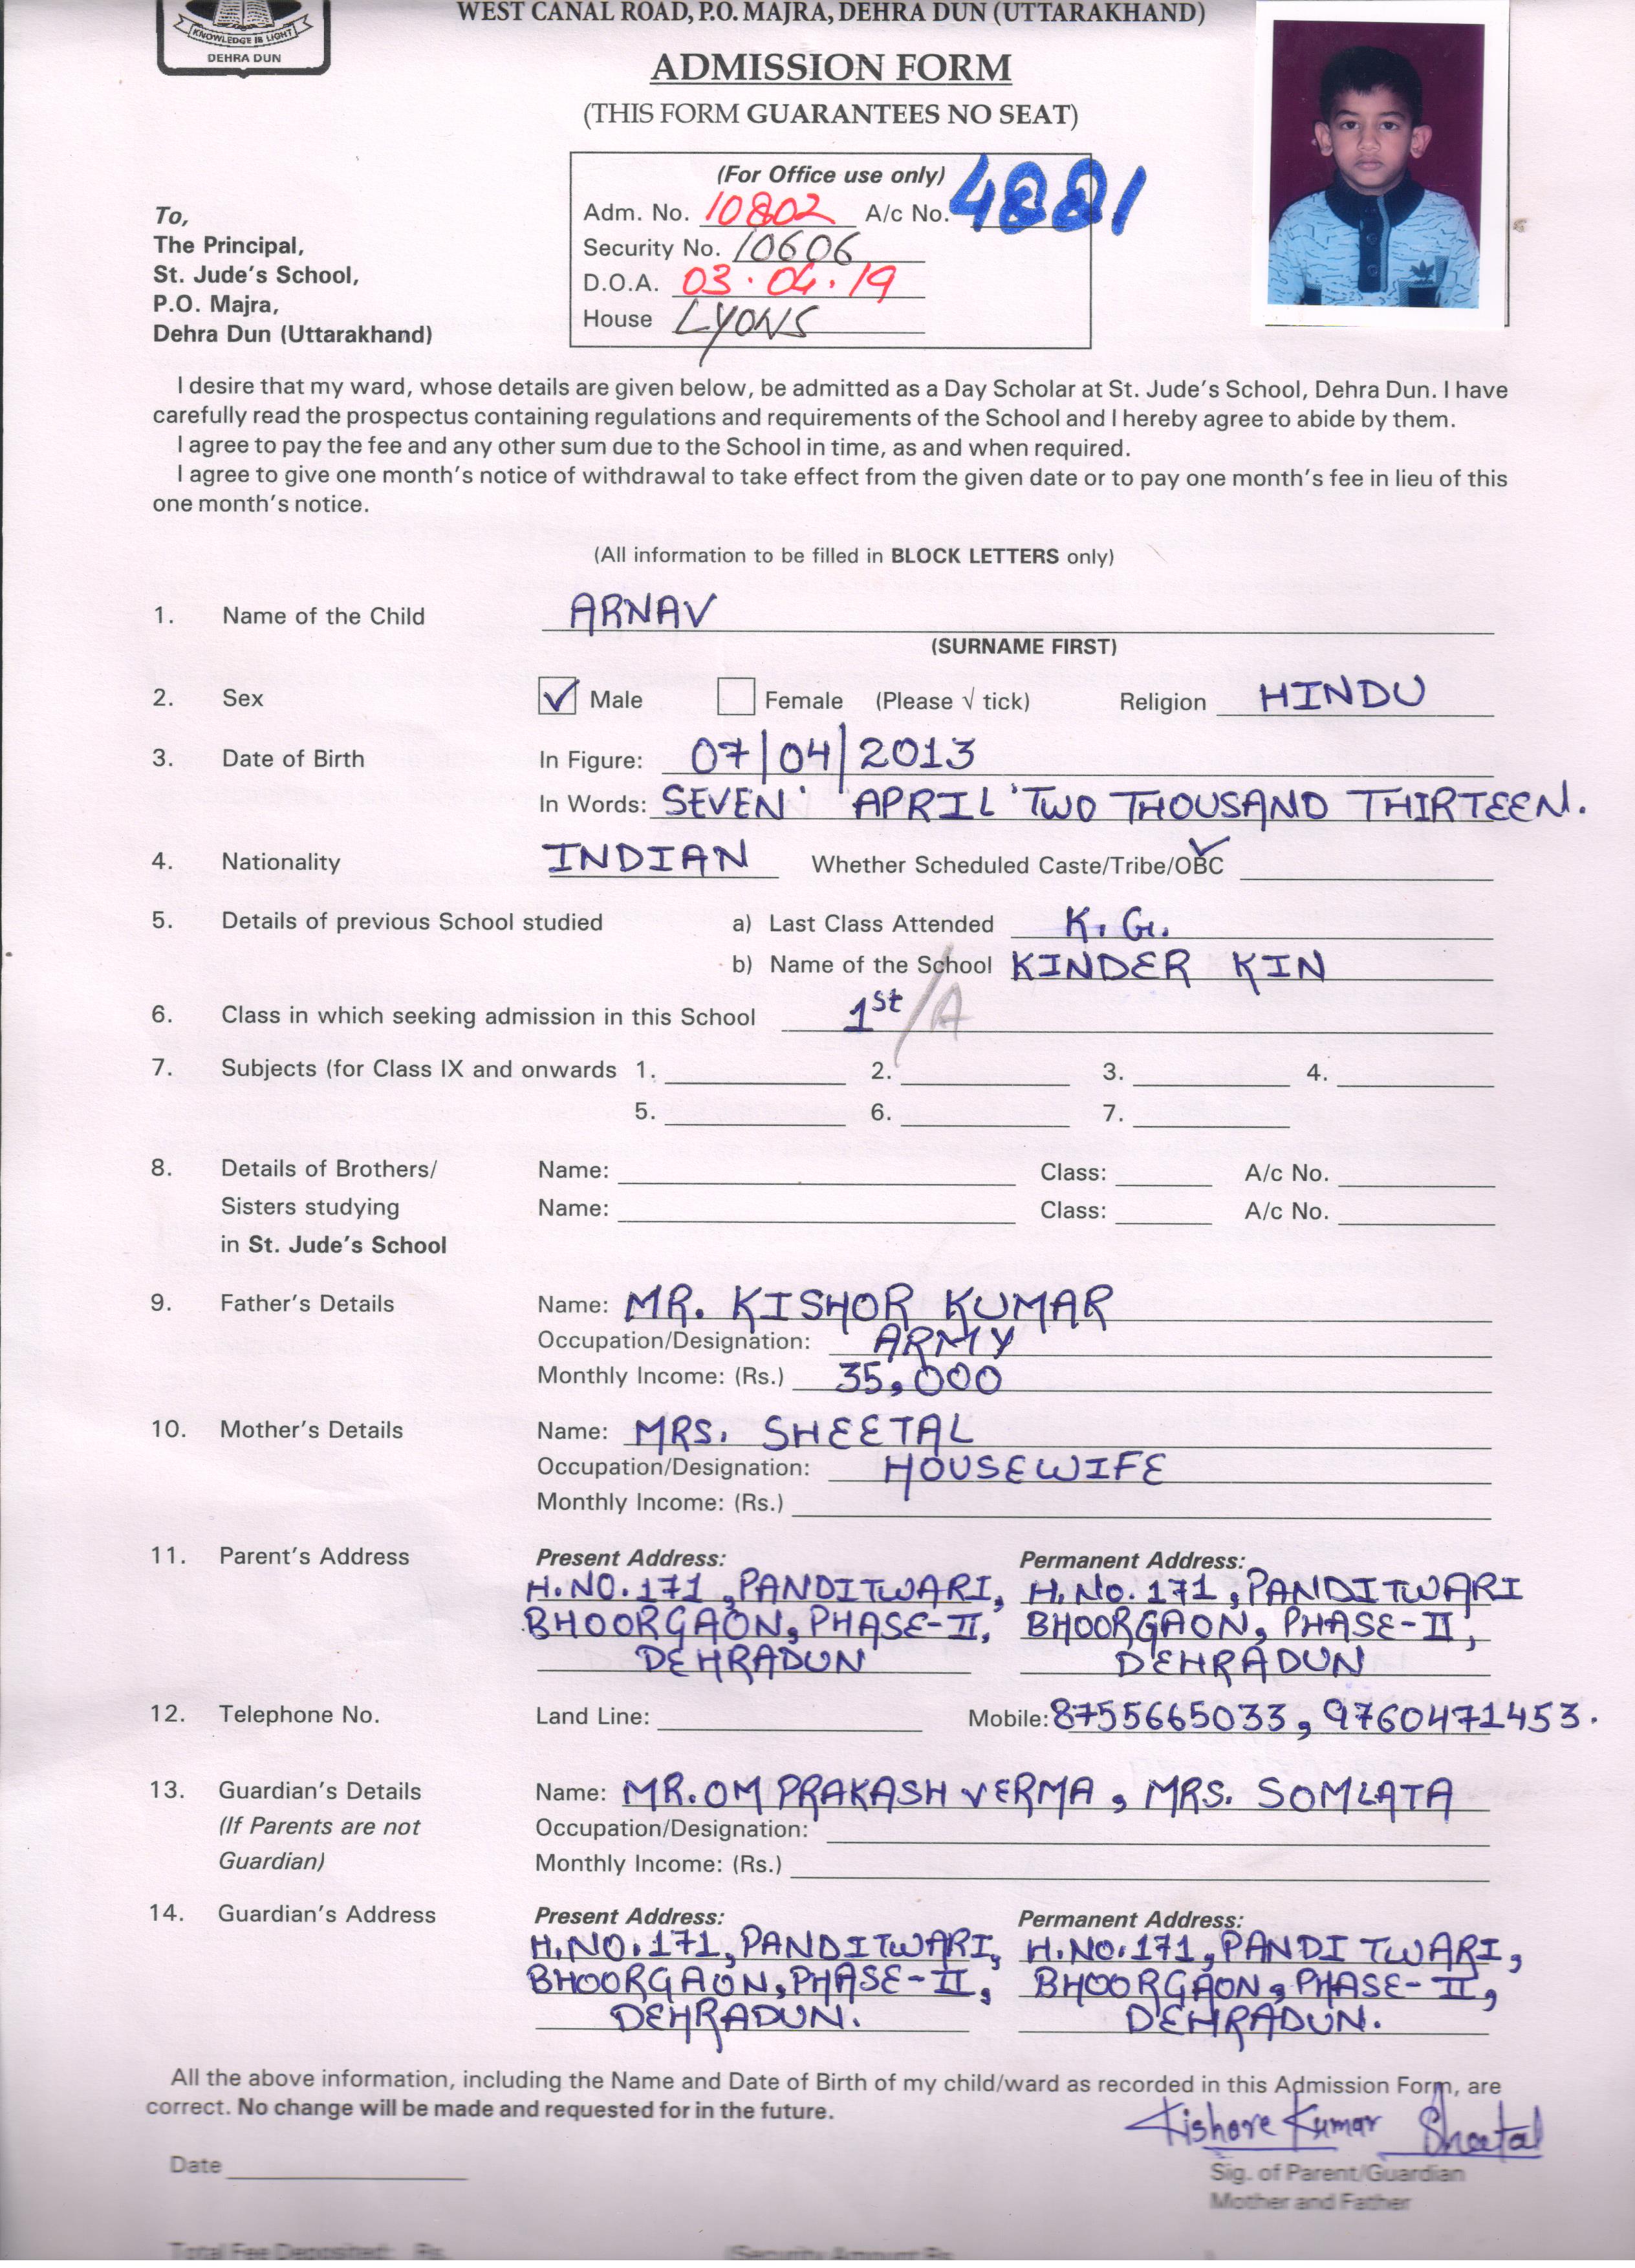 KNOWLEDGE IS LIGHT
DEHRA DUN
WEST CANAL ROAD, P.O. MAJRA, DEHRA DUN (UTTARAKHAND)
ADMISSION FORM
(THIS FORM GUARANTEES NO SEAT)
(For Office use only)
Adm. No. 10802 A/c No. 4881
Security No. 10606
D.O.A. 03.04.19
House LYONS
To,
The Principal,
St. Jude's School,
P.O. Majra,
Dehra Dun (Uttarakhand)
I desire that my ward, whose details are given below, be admitted as a Day Scholar at St. Jude's School, Dehra Dun. I have
carefully read the prospectus containing regulations and requirements of the School and I hereby agree to abide by them.
I agree to pay the fee and any other sum due to the School in time, as and when required.
I agree to give one month's notice of withdrawal to take effect from the given date or to pay one month's fee in lieu of this
one month's notice.
(All information to be filled in BLOCK LETTERS only)
1. Name of the Child ARNAV
(SURNAME FIRST)
2. Sex ✓ Male Female (Please √ tick) Religion HINDU
3. Date of Birth In Figure: 07/04/2013
In Words: SEVEN' 'APRIL 'TWO THOUSAND THIRTEEN.
4. Nationality INDIAN Whether Scheduled Caste/Tribe/OBC ✓
5. Details of previous School studied a) Last Class Attended K.G.
b) Name of the School KINDER KIN
6. Class in which seeking admission in this School 1st/A
7. Subjects (for Class IX and onwards 1. 2. 3. 4.
5. 6. 7.
8. Details of Brothers/ Name: Class: A/c No.
Sisters studying Name: Class: A/c No.
in St. Jude's School
9. Father's Details Name: MR. KISHOR KUMAR
Occupation/Designation: ARMY
Monthly Income: (Rs.) 35,000
10. Mother's Details Name: MRS. SHEETAL
Occupation/Designation: HOUSEWIFE
Monthly Income: (Rs.)
11. Parent's Address Present Address: Permanent Address:
H.NO.171, PANDITWARI, H.No. 171, PANDITWARI
BHOORGAON, PHASE-II, BHOORGAON, PHASE-II,
DEHRADUN DEHRADUN
12. Telephone No. Land Line: Mobile: 8755665033, 9760471453.
13. Guardian's Details Name: MR. OM PRAKASH VERMA, MRS. SOMLATA
(If Parents are not Occupation/Designation:
Guardian) Monthly Income: (Rs.)
14. Guardian's Address Present Address: Permanent Address:
H.NO.171, PANDITWARI, H.NO.171, PANDITWARI,
BHOORGAON, PHASE-II, BHOORGAON, PHASE-II,
DEHRADUN. DEHRADUN.
All the above information, including the Name and Date of Birth of my child/ward as recorded in this Admission Form, are
correct. No change will be made and requested for in the future.
Kishore Kumar Sheetal
Date Sig. of Parent/Guardian
Mother and Father
Total Fee Deposited: Rs. (Security Amount Rs.